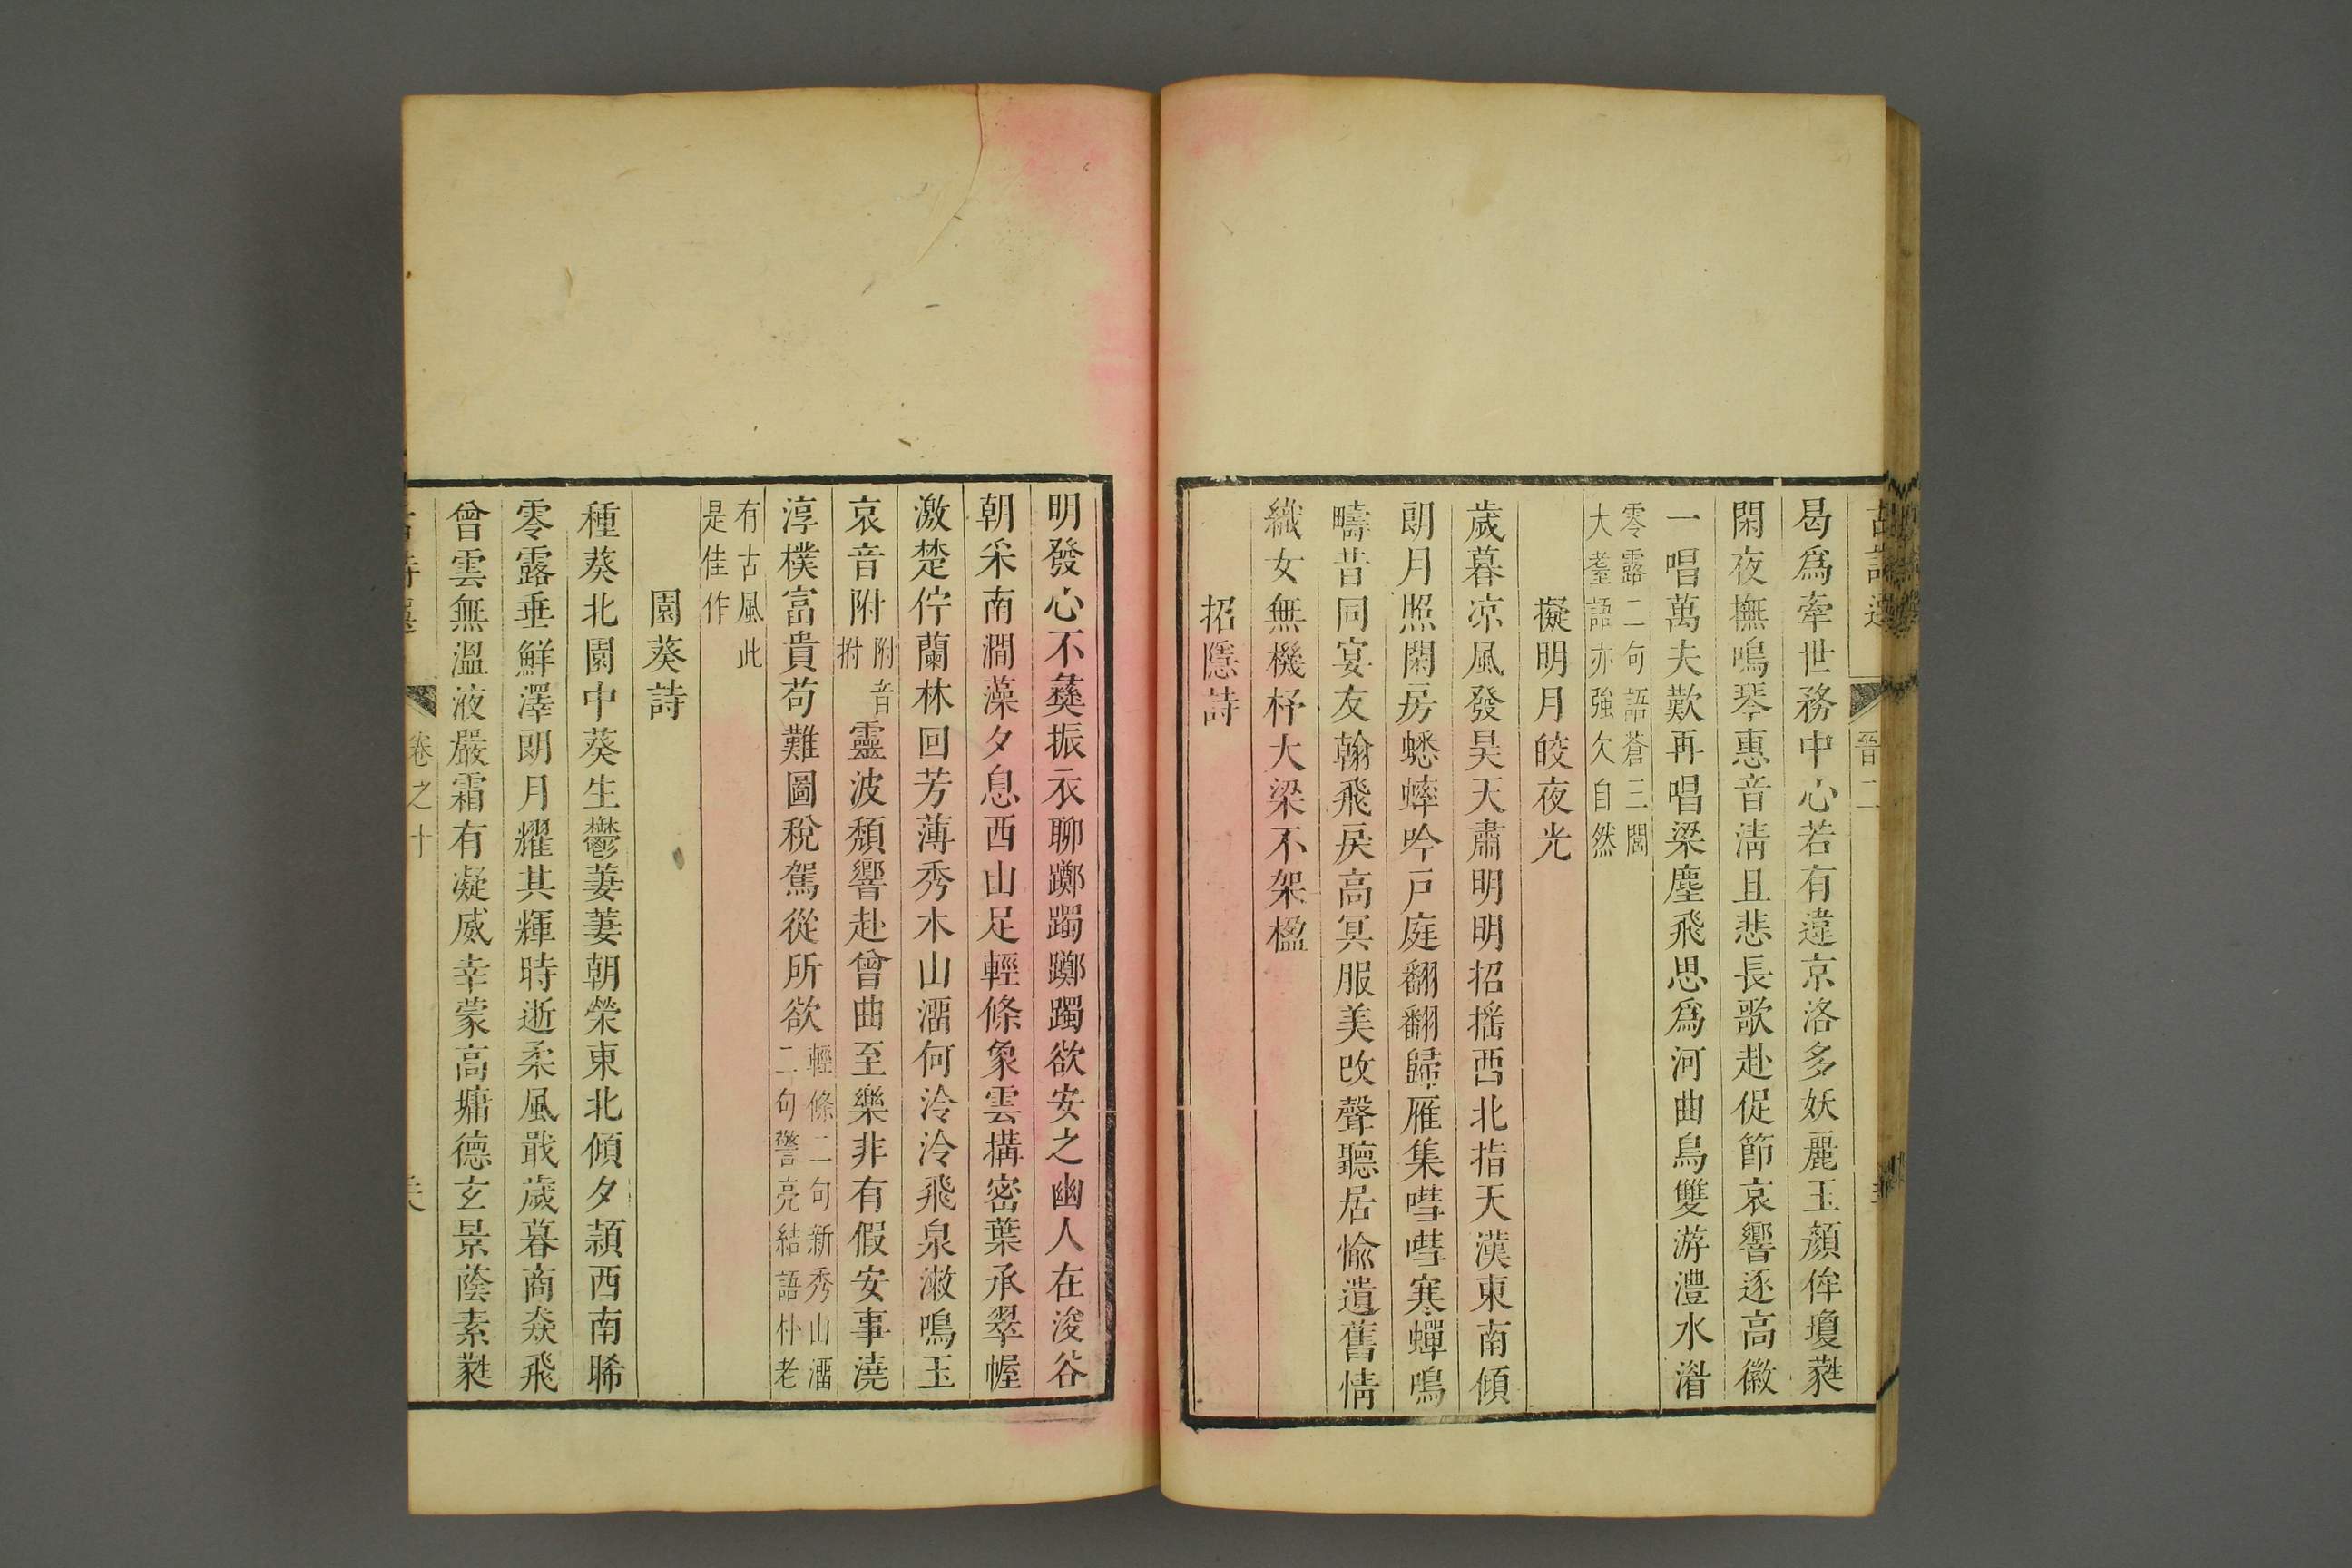 晉二
曷爲牽世務中心若有違京洛多妖麗玉顏侔瓊蕤
閑夜撫鳴琴惠音淸且悲長歌赴促節哀響逐高徽
一唱萬夫歎再唱梁塵飛思爲河曲鳥雙游澧水湄
零露二句語蒼三閭
大耋語亦強欠自然
擬明月皎夜光
歲暮凉風發昊天肅明明招摇西北指天漢東南傾
朗月照閑房蟋蟀吟戸庭翻翻歸雁集嘒嘒寒蟬鳴
疇昔同宴友翰飛戾高冥服美改聲聽居愉遺舊情
織女無機杼大梁不架楹
招隱詩
明發心不夷振衣聊躑躅躑躅欲安之幽人在浚谷
朝采南澗藻夕息西山足輕條象雲構密葉承翠幄
激楚佇蘭林回芳薄秀木山溜何泠泠飛泉漱鳴玉
哀音附附音拊靈波頹響赴曾曲至樂非有假安事澆
淳樸富貴苟難圖稅駕從所欲輕條二句新秀山溜二句警亮結語朴老
有古風此
是佳作
園葵詩
種葵北園中葵生鬱萋萋朝榮東北傾夕頴西南晞
零露垂鮮澤朗月耀其輝時逝柔風戢歲暮商猋飛
曾雲無溫液嚴霜有凝威幸蒙高墉德玄景蔭素蕤
卷之十